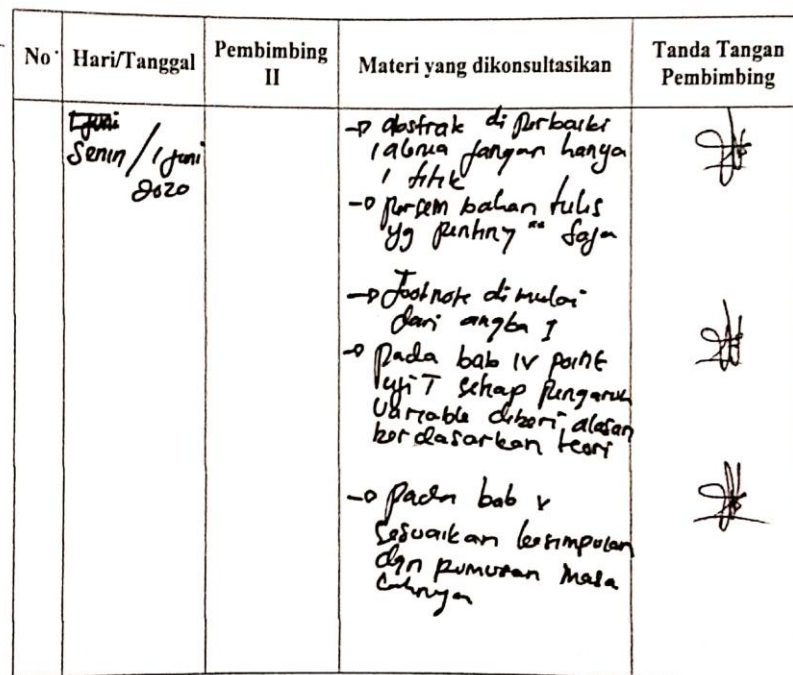 No Hari/Tanggal Pembimbing II Materi yang dikonsultasikan Tanda Tangan Pembimbing
Senin / 1 Juni
2020
→ abstrak di perbaiki
jangan hanya
1 titik
→ bahan tulis
yg saja
→ Footnote di mulai
dari angka 1
→ Pada bab IV point
uji T setiap pengaruh
variable diberi alasan
berdasarkan teori
→ pada bab V
sesuaikan kesimpulan
dgn rumusan masa